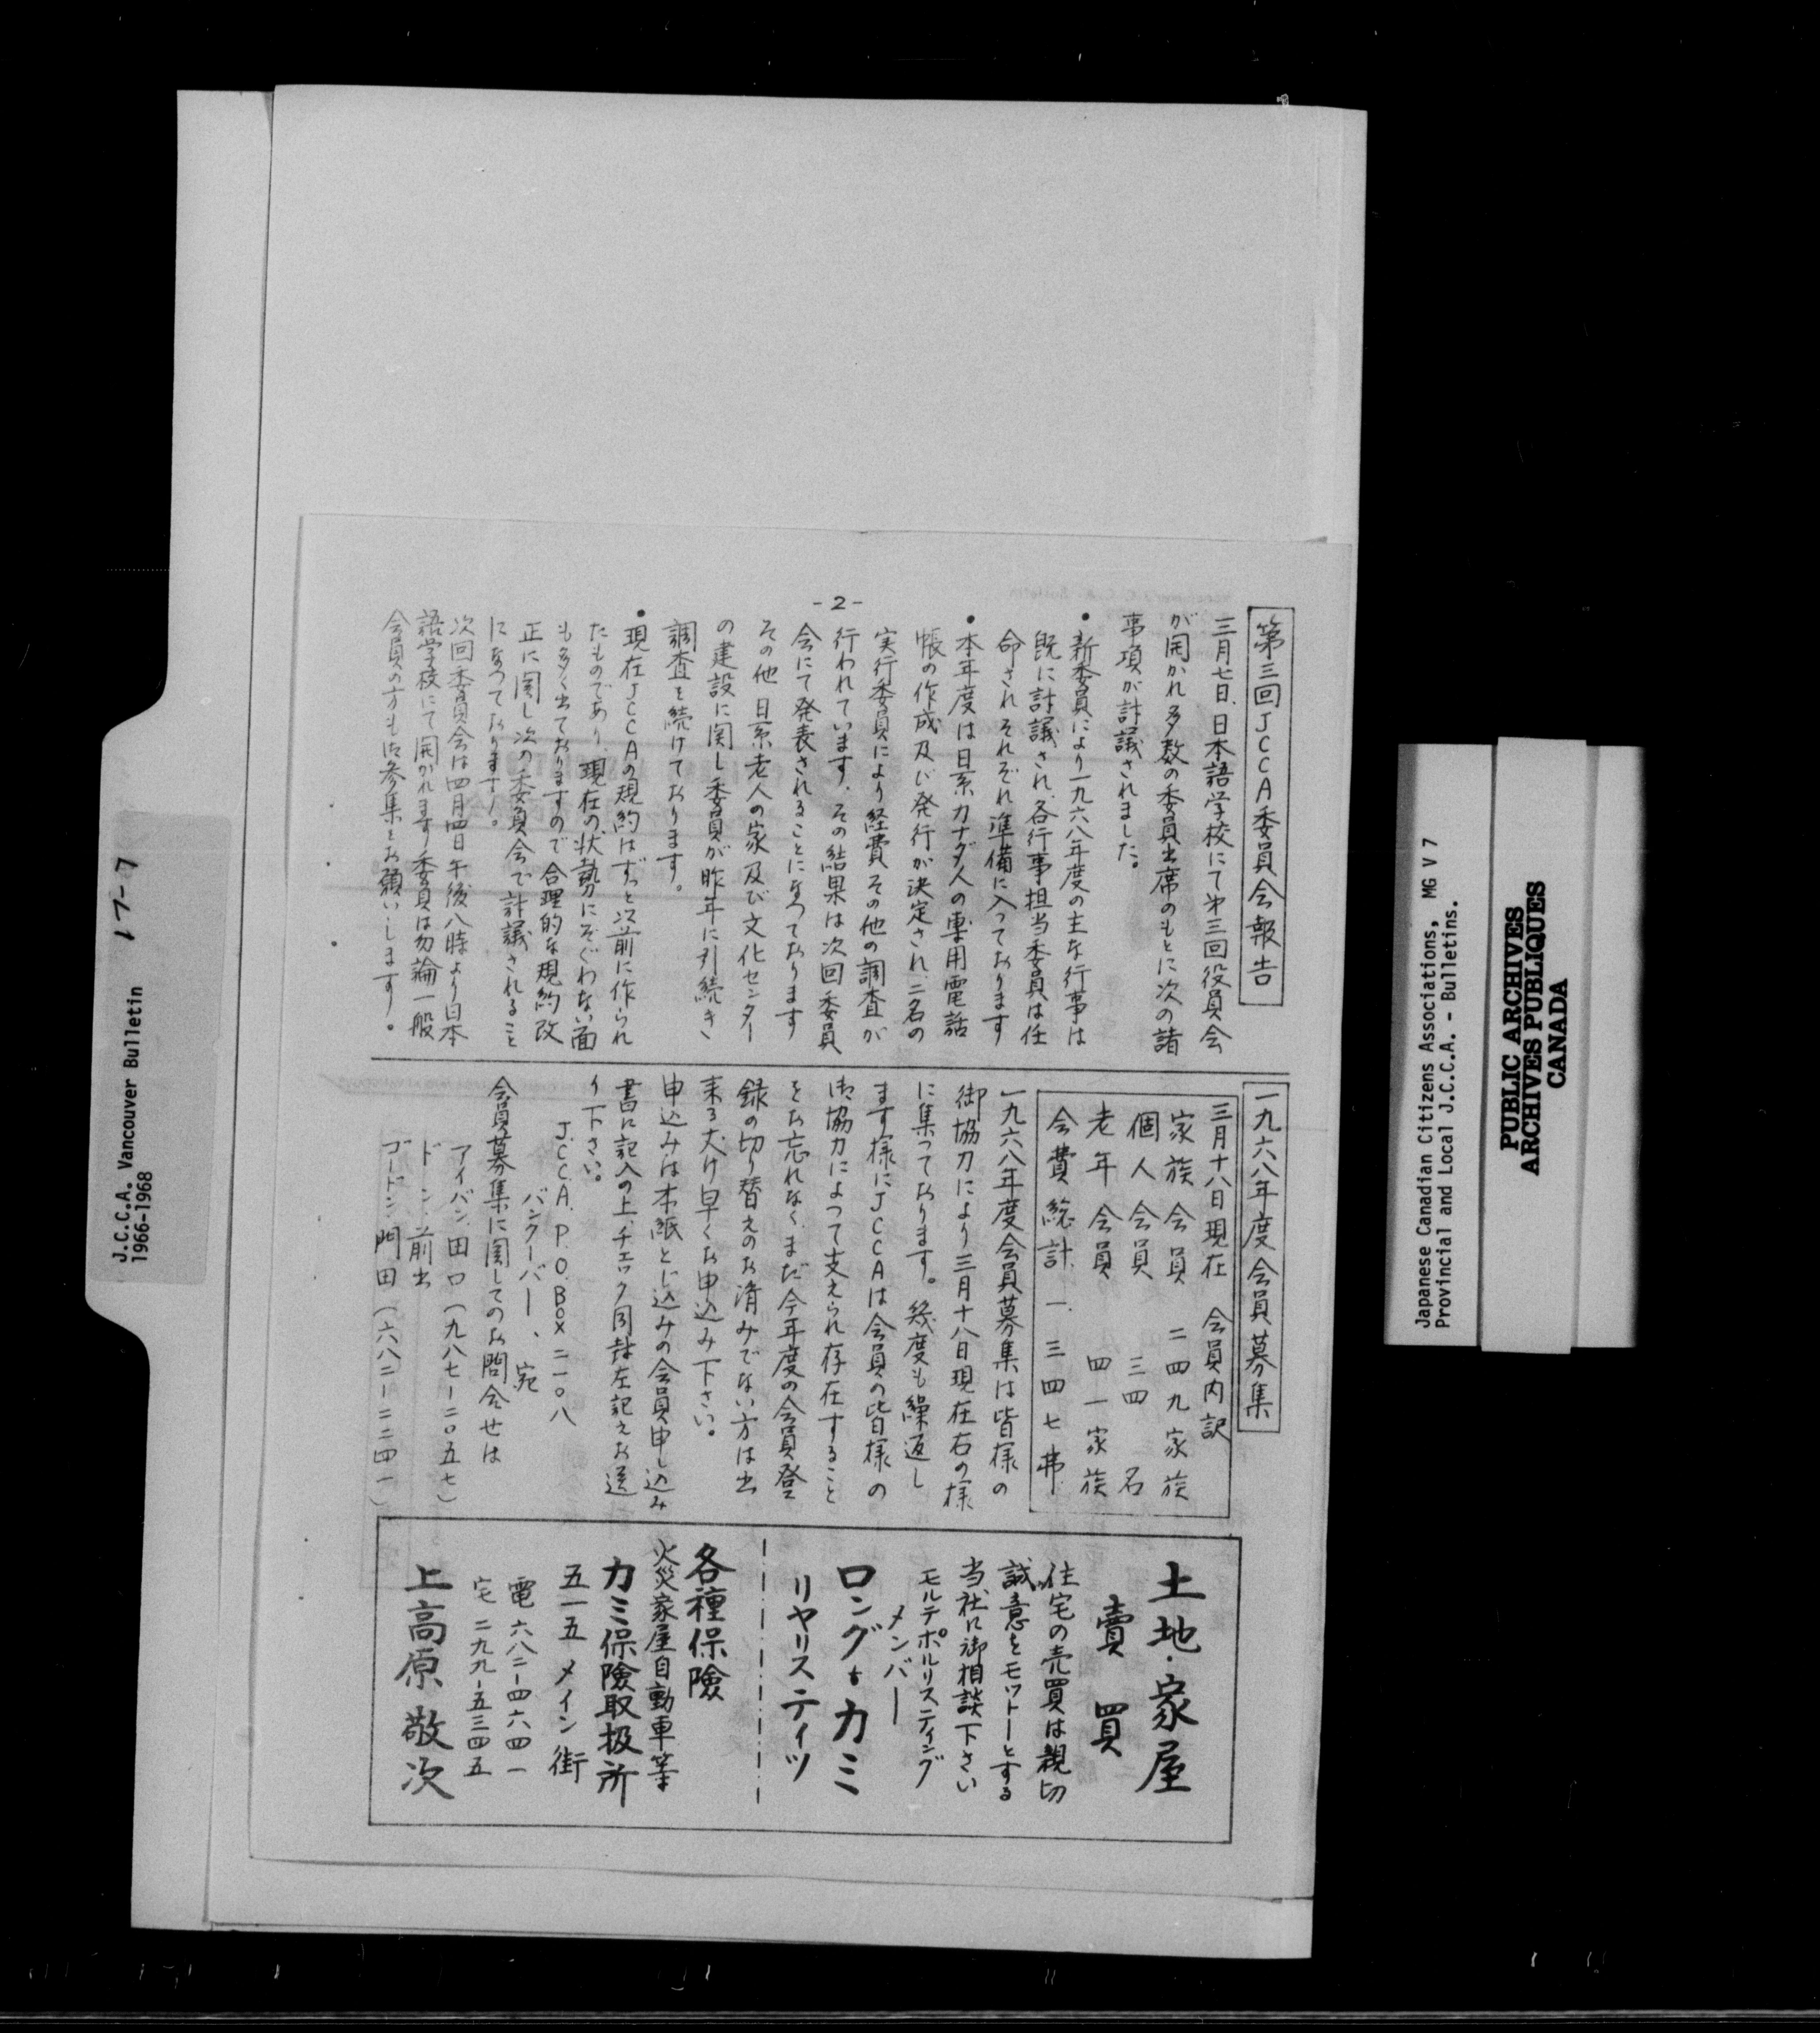 -2-
第三回JCCA委員会報告
三月七日、日本語学校にて第三回役員会
が開かれ多数の委員出席のもとに次の諸
事項が討議されました。
・新委員により一九六八年度の主な行事は
既に討議され、各行事担当委員は任
命されそれぞれ準備に入っております
・本年度は日系カナダ人の専用電話
帳の作成及び発行が決定され、二名の
実行委員により経費その他の調査が
行われています。その結果は次回委員
会にて発表されることになっております
その他日系老人の家及び文化センター
の建設に関し委員が昨年に引続き
調査を続けております。
・現在JCCAの規約はずっと以前に作られ
たものであり、現在の状勢にそぐわない面
も多く出ておりますので合理的な規約改
正に関し次の委員会で討議されること
になっております。
次回委員会は四月四日午後八時より日本
語学校にて開かれます委員は勿論一般
会員の方も御参集をお願いします。
一九六八年度会員募集
三月十八日現在 会員内訳
家族会員 二四九家族
個人会員 三四名
老年会員 四一家族
会費総計 一、三四七弗
一九六八年度会員募集は皆様の
御協力により三月十八日現在右の様
に集っております。幾度も繰返し
ます様にJCCAは会員の皆様の
御協力によって支えられ存在すること
をお忘れなく、まだ今年度の会員登
録の切り替えのお済みでない方は出
来る丈け早くお申込み下さい。
申込みは本紙とじ込みの会員申し込み
書に記入の上、チェック同封左記えお送
り下さい。
J.C.C.A. P.O.BOX 二一〇八
バンクーバー、宛
会員募集に関してのお問合せは
アイバン、田口(九八七-二〇五七)
ドン、前出
ゴードン、門田(六八二-二二四一)
土地・家屋
賣買
住宅の売買は親切
誠意をモットーとする
当社に御相談下さい
モルテポルリスティング
メンバー
ロング&カミ
リヤリスティツ
各種保險
火災家屋自動車等
カミ保險取扱所
五一五 メイン街
電 六八二-四六四一
宅 二九九-五三四五
上高原敬次
J.C.C.A. Vancouver Bulletin 17-7
1966-1968
Japanese Canadian Citizens Associations, MG V 7
Provincial and Local J.C.C.A. - Bulletins.
PUBLIC ARCHIVES
ARCHIVES PUBLIQUES
CANADA